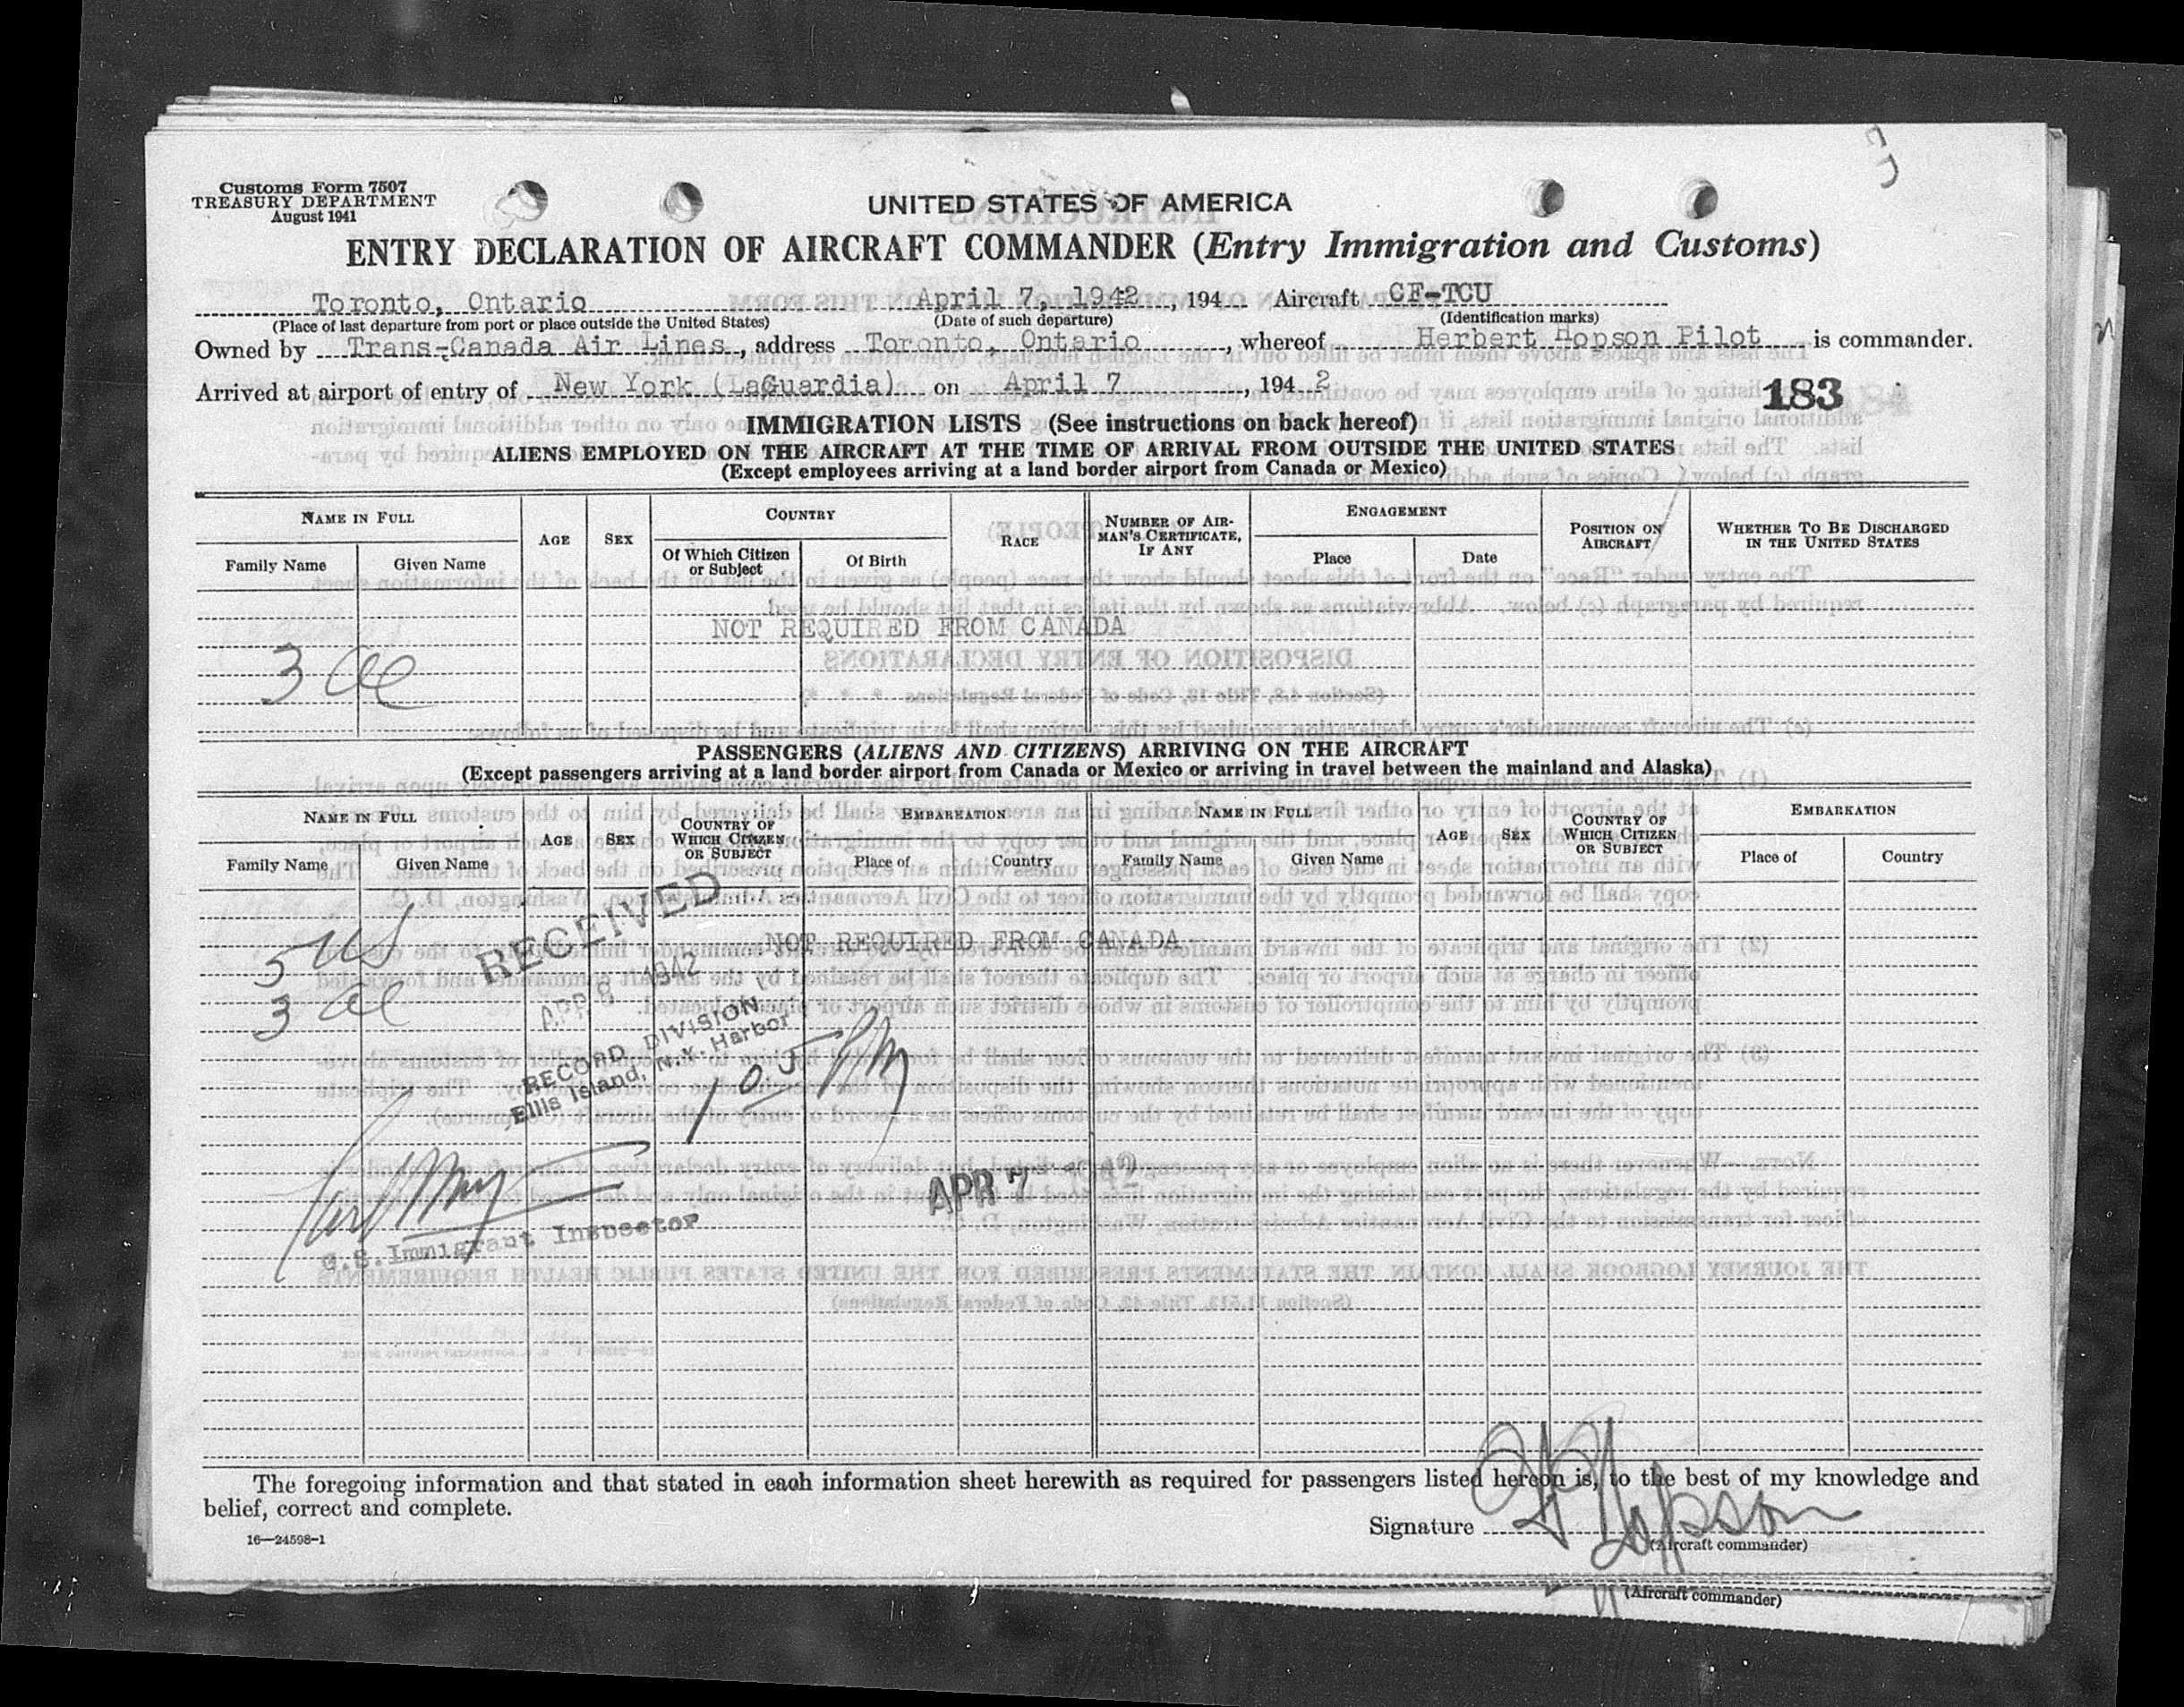 Customs Form 7507
TREASURY DEPARTMENT
August 1941
UNITED STATES OF AMERICA
ENTRY DECLARATION OF AIRCRAFT COMMANDER (Entry Immigration and Customs)
Toronto, Ontario April 7, 1942, 194 Aircraft CF-TCU
(Place of last departure from port or place outside the United States) (Date of such departure) (Identification marks)
Owned by Trans-Canada Air Lines, address Toronto, Ontario, whereof Herbert Hopson Pilot is commander.
Arrived at airport of entry of New York (LaGuardia) on April 7, 194 2
183
IMMIGRATION LISTS (See instructions on back hereof)
ALIENS EMPLOYED ON THE AIRCRAFT AT THE TIME OF ARRIVAL FROM OUTSIDE THE UNITED STATES
(Except employees arriving at a land border airport from Canada or Mexico)
NAME IN FULL
Family Name Given Name
AGE
SEX
COUNTRY
Of Which Citizen or Subject
Of Birth
RACE
NUMBER OF AIRMAN'S CERTIFICATE, IF ANY
ENGAGEMENT
Place Date
POSITION ON AIRCRAFT
WHETHER TO BE DISCHARGED IN THE UNITED STATES
NOT REQUIRED FROM CANADA
3
PASSENGERS (ALIENS AND CITIZENS) ARRIVING ON THE AIRCRAFT
(Except passengers arriving at a land border airport from Canada or Mexico or arriving in travel between the mainland and Alaska)
NAME IN FULL
Family Name Given Name
AGE
SEX
COUNTRY OF WHICH CITIZEN OR SUBJECT
EMBARKATION
Place of Country
NAME IN FULL
Family Name Given Name
AGE
SEX
COUNTRY OF WHICH CITIZEN OR SUBJECT
EMBARKATION
Place of Country
NOT REQUIRED FROM CANADA
5 US
3
RECEIVED
APR 8 1942
RECORD DIVISION
Ellis Island, N.Y. Harbor
1 05 PM
APR 7 1942
U.S. Immigrant Inspector
The foregoing information and that stated in each information sheet herewith as required for passengers listed hereon is, to the best of my knowledge and
belief, correct and complete.
16—24598-1
Signature H Hopson
(Aircraft commander)
(Aircraft commander)